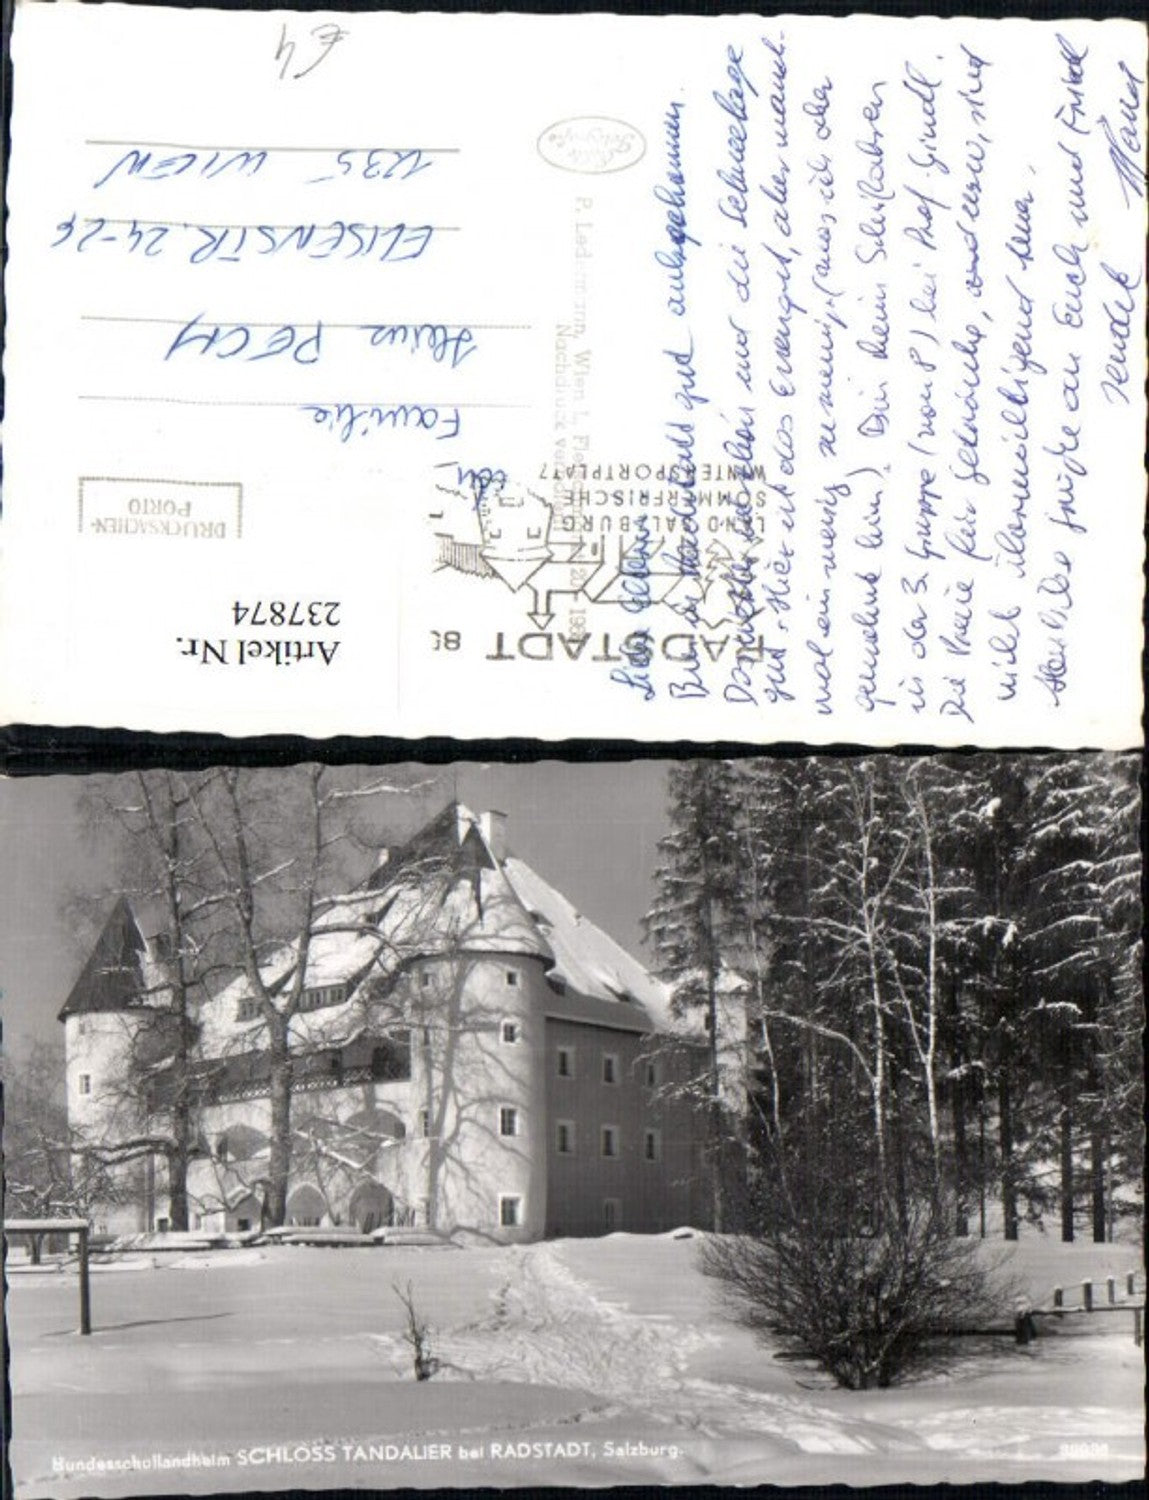 €4
An
Familie
Heinz PECH
ELISENSTR. 24-26
1235 WIEN
DRUCKSACHEN-
PORTO
Artikel Nr.
237874
RADSTADT 85
LAND SALZBURG
SOMMERFRISCHE
WINTERSPORTPLATZ
P. Ledermann, Wien I.,
Nachdruck
Liebe Eltern
Bin in Radstadt gut angekommen.
Das Wetter ist schön und die Schneelage
gut. Hier ist das Essen gut, aber manch-
mal ein wenig zu wenig (was ich der
gewohnt bin). Bin beim Schifahren
in der 3. Gruppe (von 8) bei Prof. Gindl.
Die Preise für Getränke, und usw, sind
nicht überwältigend teuer.
Herzliche Grüße an Euch und
sendet
Bundesschullandheim SCHLOSS TANDALIER bei RADSTADT, Salzburg.